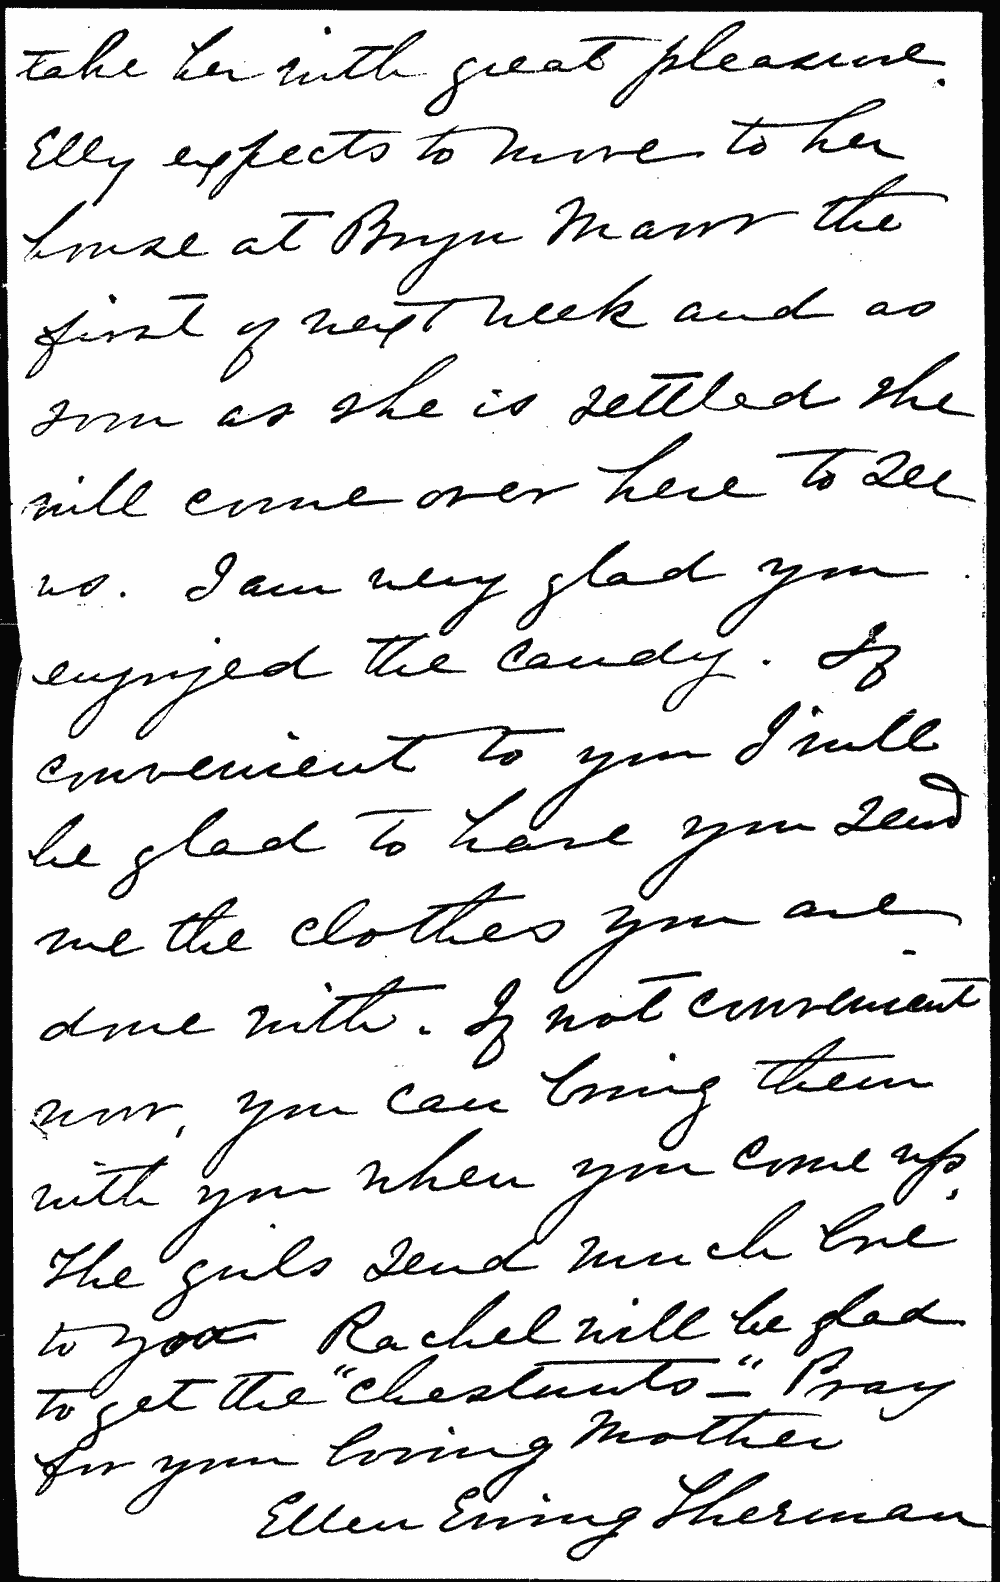 take her with great pleasure.
Elly expects to move to her
house at Bryn Mawr the
first of next week and as
soon as she is settled she
will come over here to see
us. I am very glad you
enjoyed the candy. If
convenient to you I will
be glad to have you send
me the clothes you are
done with. If not convenient
now, you can bring them
with you when you come up.
The girls send much love
to you Rachel will be glad
to get the "chestnuts"— Pray
for your loving Mother
Ellen Ewing Sherman